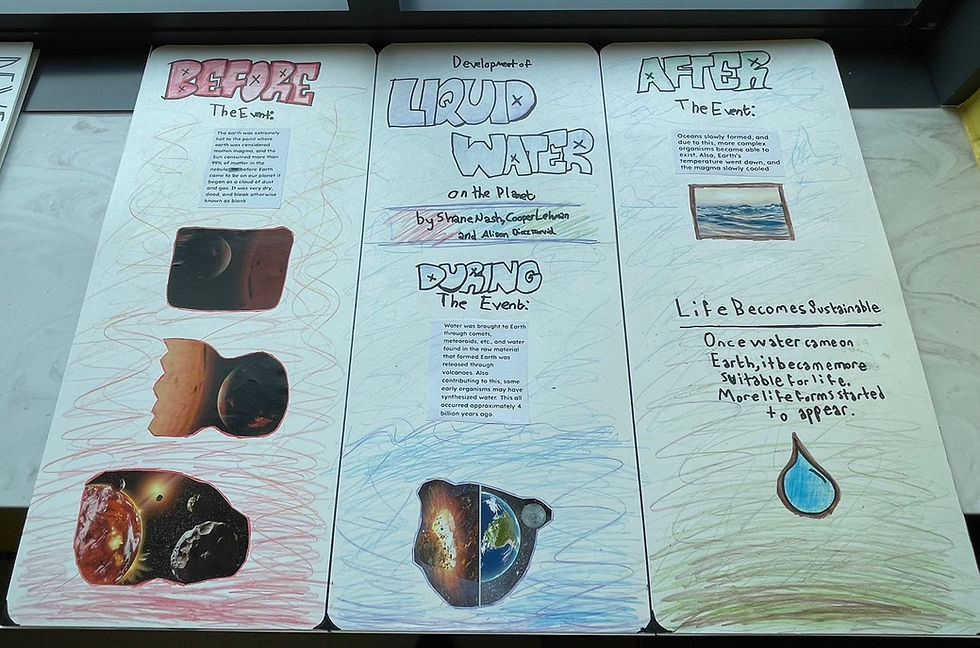 BEFORE
The Event:
The earth was extremely
hot to the point where
earth was considered
molten magma, and the
Sun consumed more than
99% of matter in the
nebula before Earth
came to be on our planet it
began as a cloud of dust
and gas. It was very dry,
dead, and bleak otherwise
known as blank
Development of
LIQUID
WATER
on the Planet
by Shane Nash, Cooper Lehman
and Alison
DURING
The Event:
Water was brought to Earth
through comets,
meteoroids, etc., and water
found in the raw material
that formed Earth was
released through
volcanoes. Also
contributing to this, some
early organisms may have
synthesized water. This all
occurred approximately 4
billion years ago.
AFTER
The Event:
Oceans slowly formed, and
due to this, more complex
organisms became able to
exist. Also, Earth's
temperature went down, and
the magma slowly cooled
Life Becomes Sustainable
Once water came on
Earth, it became more
suitable for life.
More life forms started
to appear.